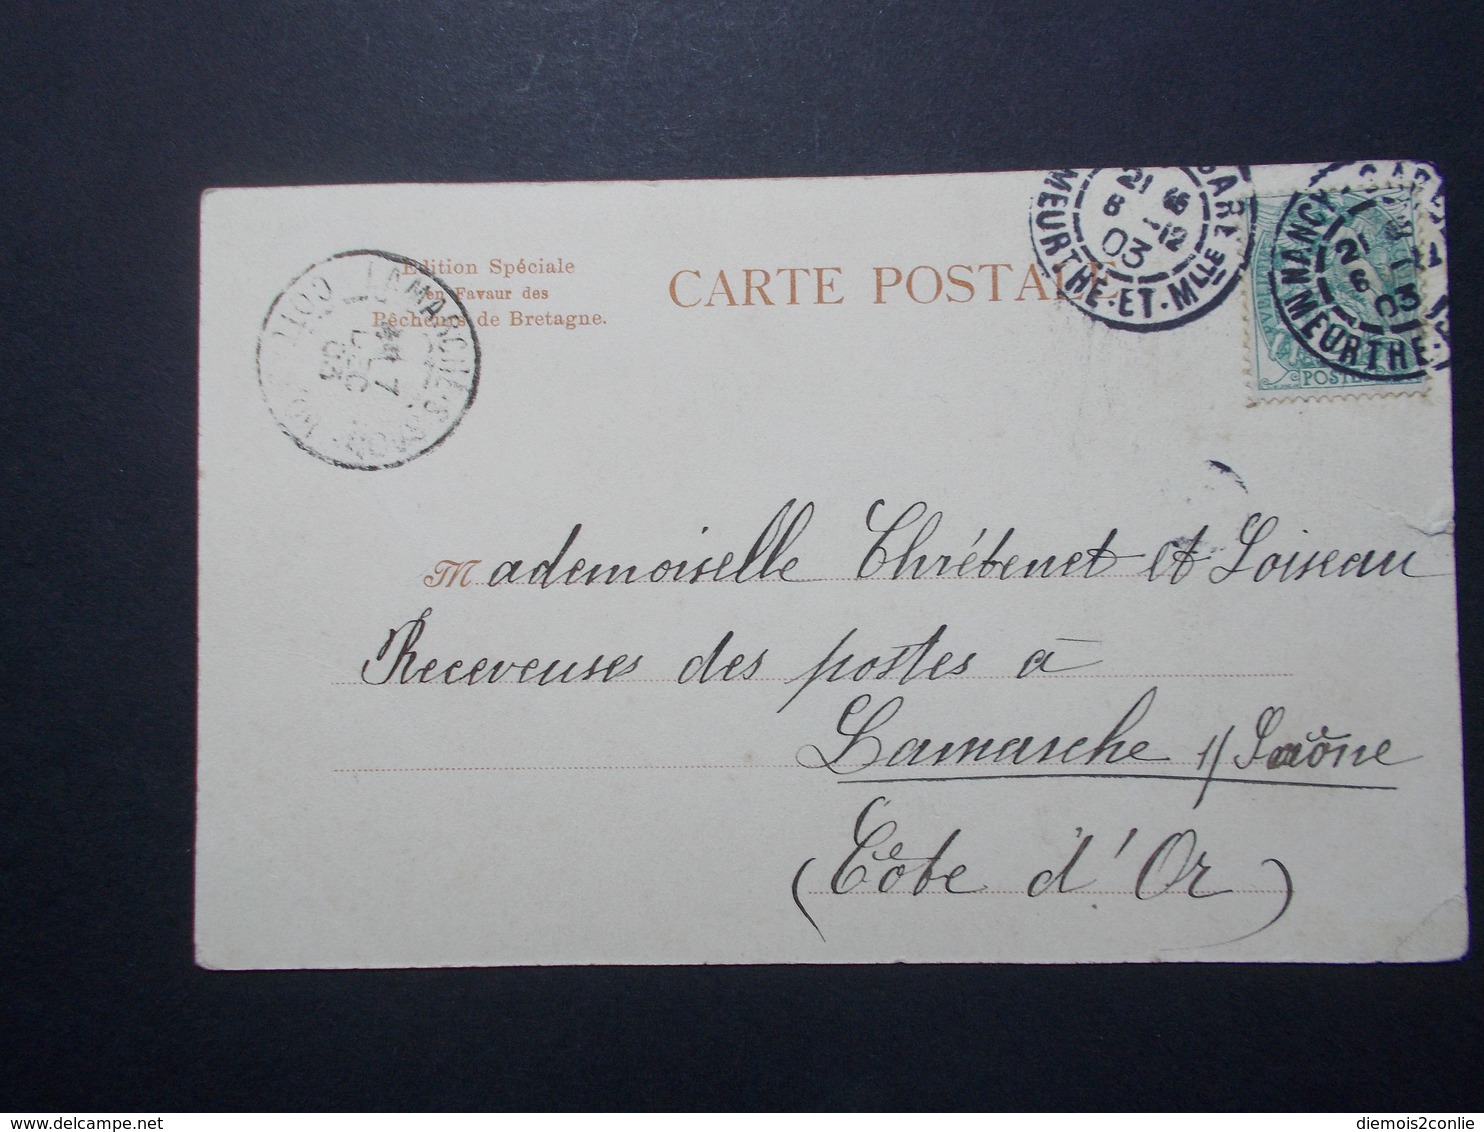 Edition Spéciale
en Favaur des
Pêcheurs de Bretagne.
CARTE POSTALE
LAMARCHE-S-SAONE
7
DEC
03
GARE
21
6 12
03
MEURTHE-ET-MLLE
NANCY-GARE
21
6
03
MEURTHE
POSTES
Mademoiselle Chrétenet et Loiseau
Receveuses des postes à
Lamarche s/ Saône
(Côte d'Or)
diemois2conlie